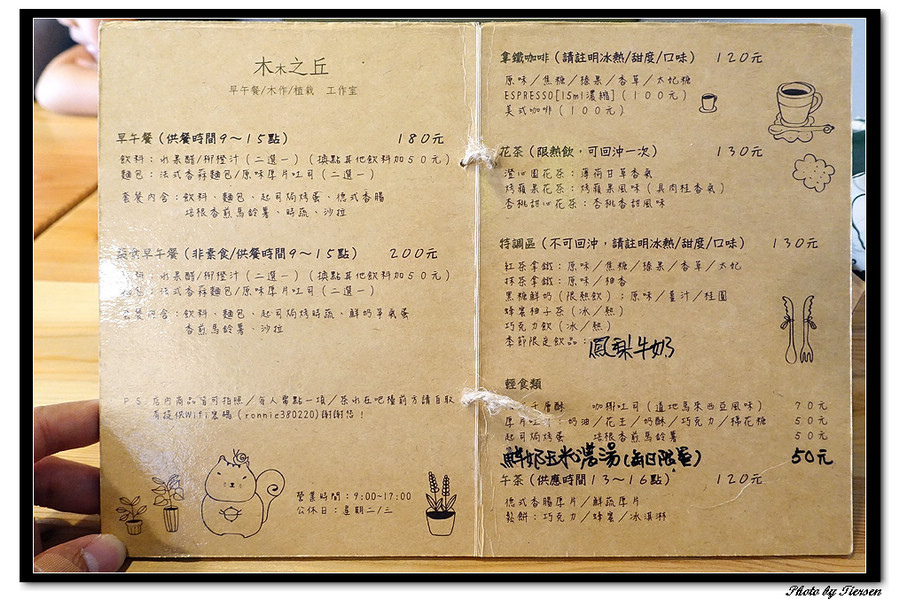 木木之丘
早午餐/木作/植栽 工作室
早午餐(供餐時間9～15點) 180元
飲料:水果醋/柳橙汁(二選一)(換點其他飲料加50元)
麵包:法式香蒜麵包/原味厚片吐司(二選一)
套餐內含:飲料、麵包、起司焗烤蛋、德式香腸
培根香煎馬鈴薯、時蔬、沙拉
早午餐(非素食/供餐時間9～15點) 200元
水果醋/柳橙汁(二選一)(換點其他飲料加50元)
法式香蒜麵包/原味厚片吐司(二選一)
套餐內含:飲料、麵包、起司焗烤時蔬、鮮奶羊氣蛋
香煎馬鈴薯、沙拉
P.S.店內商品皆可拍照/每人需點一項/茶水在吧檯前方請自取
有提供Wifi密碼(ronnie380220)謝謝您!
營業時間:9:00~17:00
公休日:星期二/三
拿鐵咖啡(請註明冰熱/甜度/口味) 120元
原味/焦糖/榛果/香草/太妃糖
ESPRESSO[15ml濃縮](100元)
美式咖啡(100元)
花茶(限熱飲,可回沖一次) 130元
澄心園花茶:薄荷甘草香氣
烤蘋果花茶:烤蘋果風味(具肉桂香氣)
杏桃甜心花茶:杏桃香甜風味
特調區(不可回沖,請註明冰熱/甜度/口味) 130元
紅茶拿鐵:原味/焦糖/榛果/香草/太妃
抹茶拿鐵:原味/柚香
黑糖鮮奶(限熱飲):原味/薑汁/桂圓
蜂蜜柚子茶(冰/熱)
巧克力飲(冰/熱)
季節限定飲品:鳳梨牛奶
輕食類
千層酥 咖椰吐司(道地馬來西亞風味) 70元
厚片吐司:奶油/花生/奶酥/巧克力/棉花糖 50元
起司焗烤蛋 培根香煎馬鈴薯 50元
鮮奶玉米濃湯(每日限量) 50元
午茶(供應時間13～16點) 120元
德式香腸厚片/鮮蔬厚片
鬆餅:巧克力/蜂蜜/冰淇淋
Photo by Tiersen